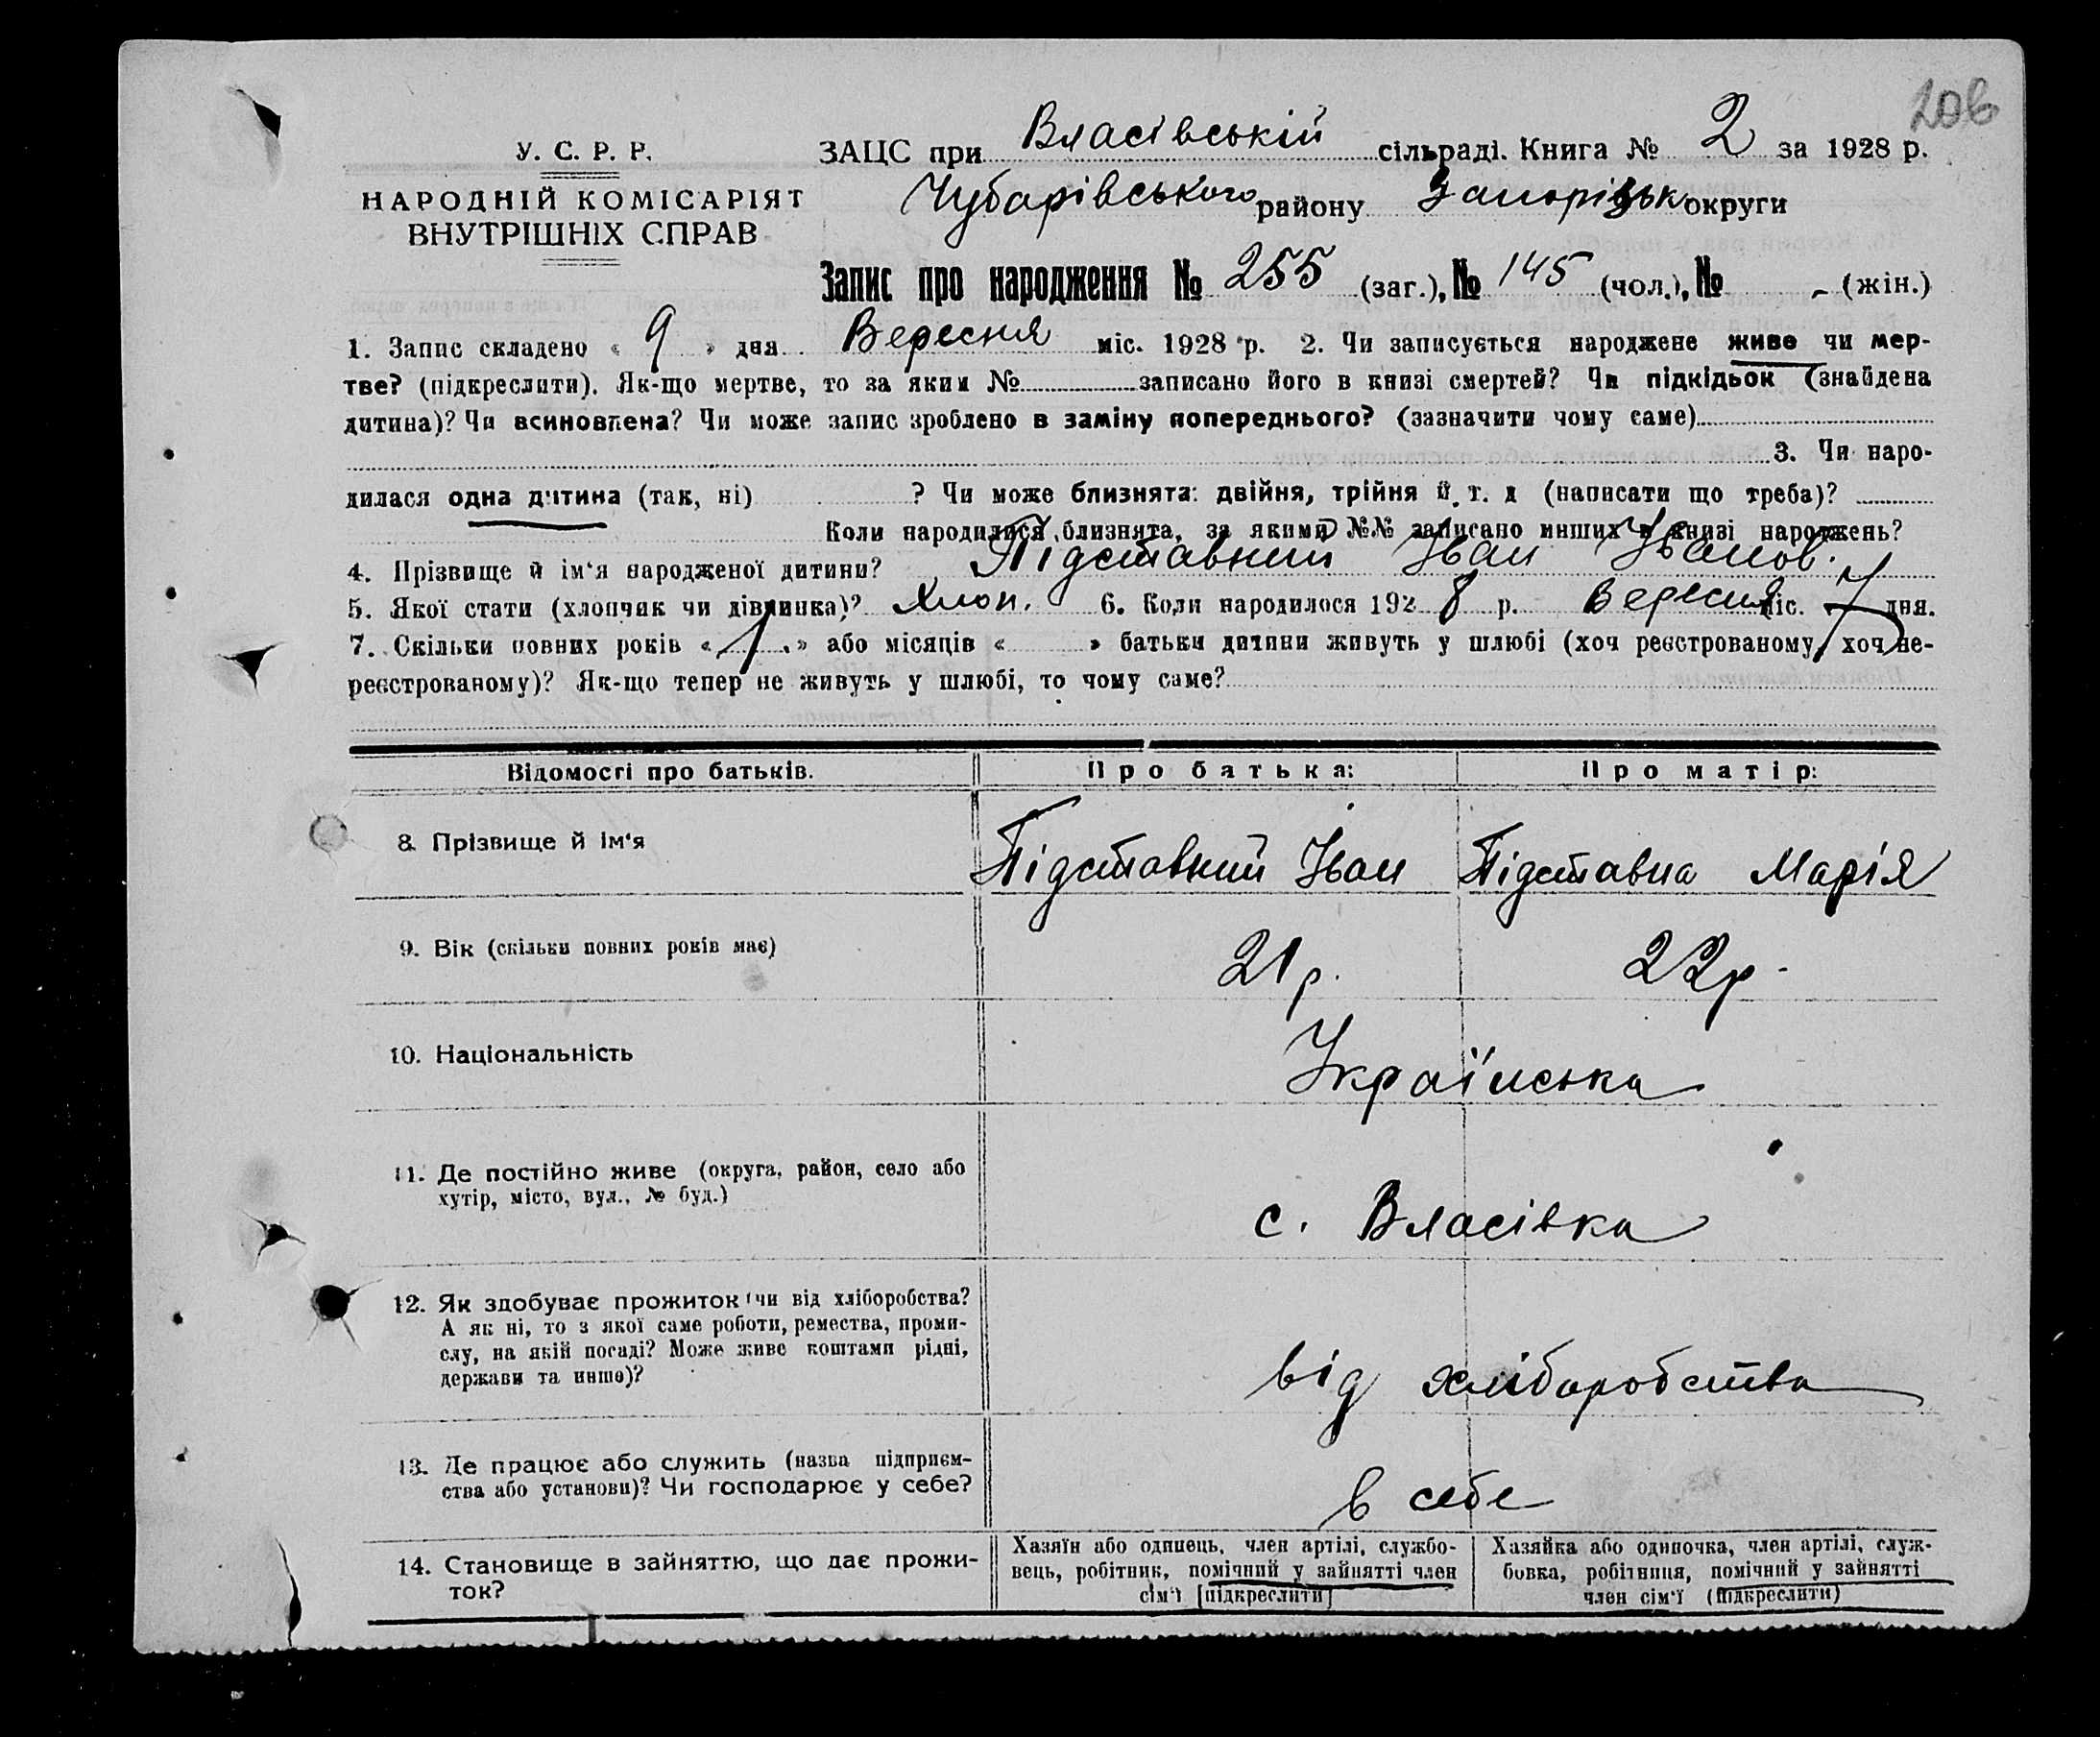 206
У. С. Р. Р.
НАРОДНІЙ КОМІСАРІЯТ
ВНУТРІШНІХ СПРАВ
ЗАЦС при Власівській сільраді. Книга № 2 за 1928 р.
Чубарівського району Запорізьк округи
Запис про народження № 255 (заг.), № 145 (чол.), № - (жін.)
1. Запис складено « 9 » дня Вересня міс. 1928 р. 2. Чи записується народжене живе чи мер-
тве? (підкреслити). Як-що мертве, то за яким № записано його в книзі смертей? Чи підкідьок (знайдена
дитина)? Чи всиновлена? Чи може запис зроблено в заміну попереднього? (зазначити чому саме)
3. Чи наро-
дилася одна дитина (так, ні) ? Чи може близнята: двійня, трійня й т. д (написати що треба)?
Коли народилися близнята, за якими №№ записано инших в книзі народжень?
4. Прізвище й ім‘я народженої дитини? Підставний Іван Іванов.
5. Якої стати (хлопчик чи дівчинка)? Хлоп. 6. Коли народилося 1928 р. Вересня міс. 7 дня.
7. Скільки повних років « 1 » або місяців « » батьки дитини живуть у шлюбі (хоч реєстрованому, хоч не-
реєстрованому)? Як-що тепер не живуть у шлюбі, то чому саме?
Відомості про батьків. Про батька: Про матір:
8. Прізвище й ім‘я Підставний Іван Підставна Марія
9. Вік (скільки повних років має) 21 р. 22 р.
10. Національність Українська
11. Де постійно живе (округа, район, село або
хутір, місто, вул., № буд.)
с. Власівка
12. Як здобуває прожиток (чи від хліборобства?
А як ні, то з якої саме роботи, ремества, проми-
слу, на якій посаді? Може живе коштами рідні,
держави та инше)?
від хліборобства
13. Де працює або служить (назва підприєм-
ства або установи)? Чи господарює у себе?
в себе
14. Становище в зайняттю, що дає прожи-
ток?
Хазяїн або одинець, член артілі, службо-
вець, робітник, помічний у зайнятті член
сім‘ї [підкреслити]
Хазяйка або одиночка, член артілі, служ-
бовка, робітниця, помічний у зайнятті
член сім‘ї (підкреслити)